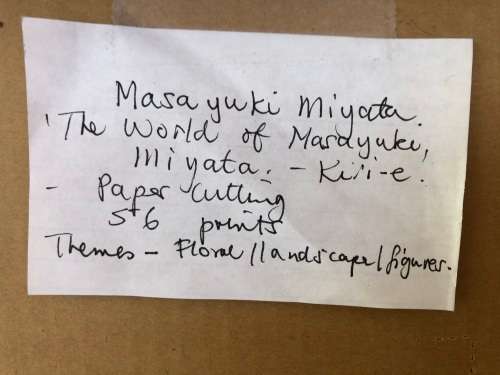 Masayuki Miyata.
'The World of Masayuki,
Miyata. - Kiri-e.
- Paper Cutting
56 prints
Themes - Floral/landscape/figures.